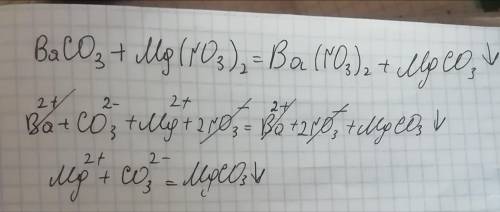 BaCO₃ + Mg(NO₃)₂ = Ba(NO₃)₂ + MgCO₃↓
Ba²⁺ + CO₃²⁻ + Mg²⁺ + 2NO₃⁻ = Ba²⁺ + 2NO₃⁻ + MgCO₃↓
Mg²⁺ + CO₃²⁻ = MgCO₃↓